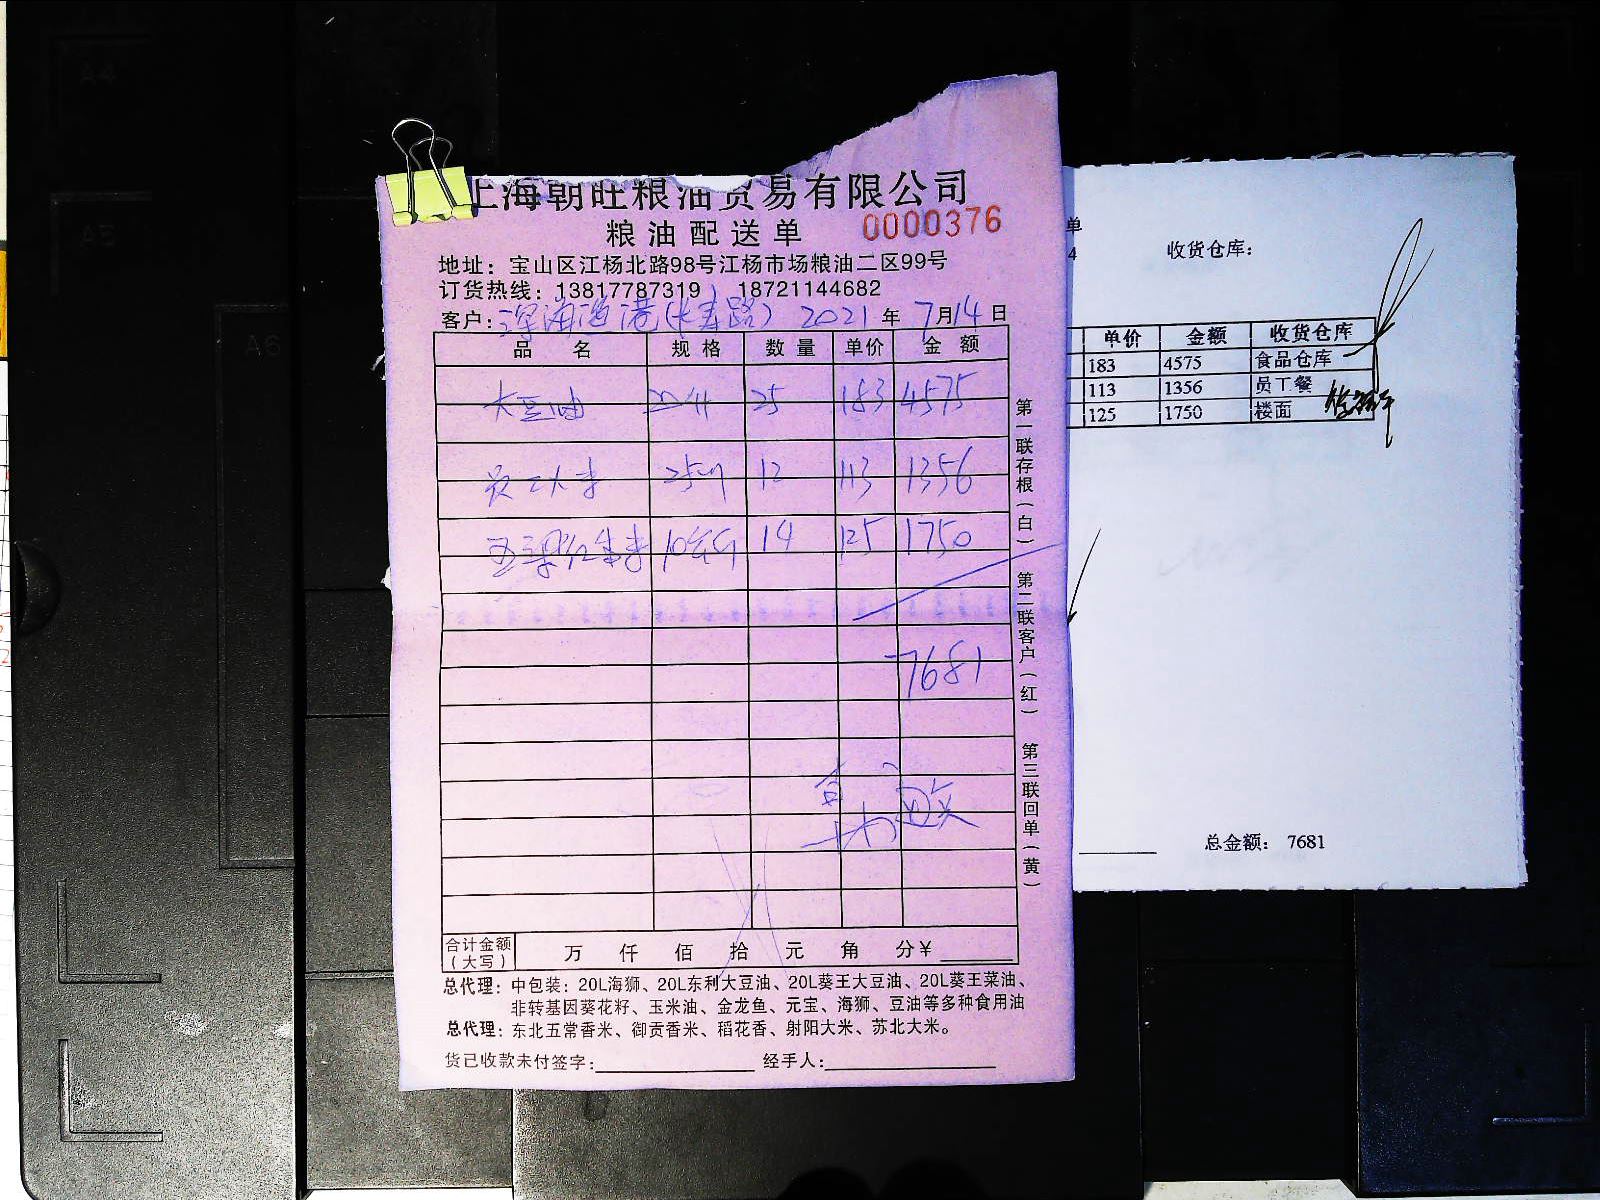 上海朝旺粮油贸易有限公司
粮油配送单 0000376
地址：宝山区江杨北路98号江杨市场粮油二区99号
订货热线：13817787319 18721144682
客户：深海渔港(长寿路) 2021年7月14日
品名 规格 数量 单价 金额
大豆油 25 183 4575
员工大米 12 113 1356
五常 14 125 1750
7681
合计金额（大写） 万 仟 佰 拾 元 角 分¥
总代理：中包装：20L海狮、20L东利大豆油、20L葵王大豆油、20L葵王菜油、
非转基因葵花籽、玉米油、金龙鱼、元宝、海狮、豆油等多种食用油
总代理：东北五常香米、御贡香米、稻花香、射阳大米、苏北大米。
货已收款未付签字： 经手人：
第一联存根（白） 第二联客户（红） 第三联回单（黄）
单
4 收货仓库：
单价 金额 收货仓库
183 4575 食品仓库
113 1356 员工餐
125 1750 楼面
总金额： 7681
A4
A5
A6